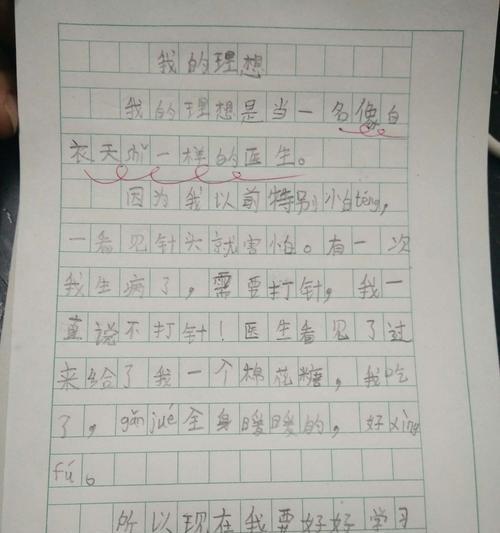 我的理想
我的理想是当一名像白
衣天shǐ一样的医生。
因为我以前特别怕téng,
一看见针头就害怕。有一次
我生病了，需要打针，我一
直说不打针！医生看见了过
来给了我一个棉花糖，我吃
了，gǎnjué全身暖暖的，好xìng
fú。
所以现在我要好好学习